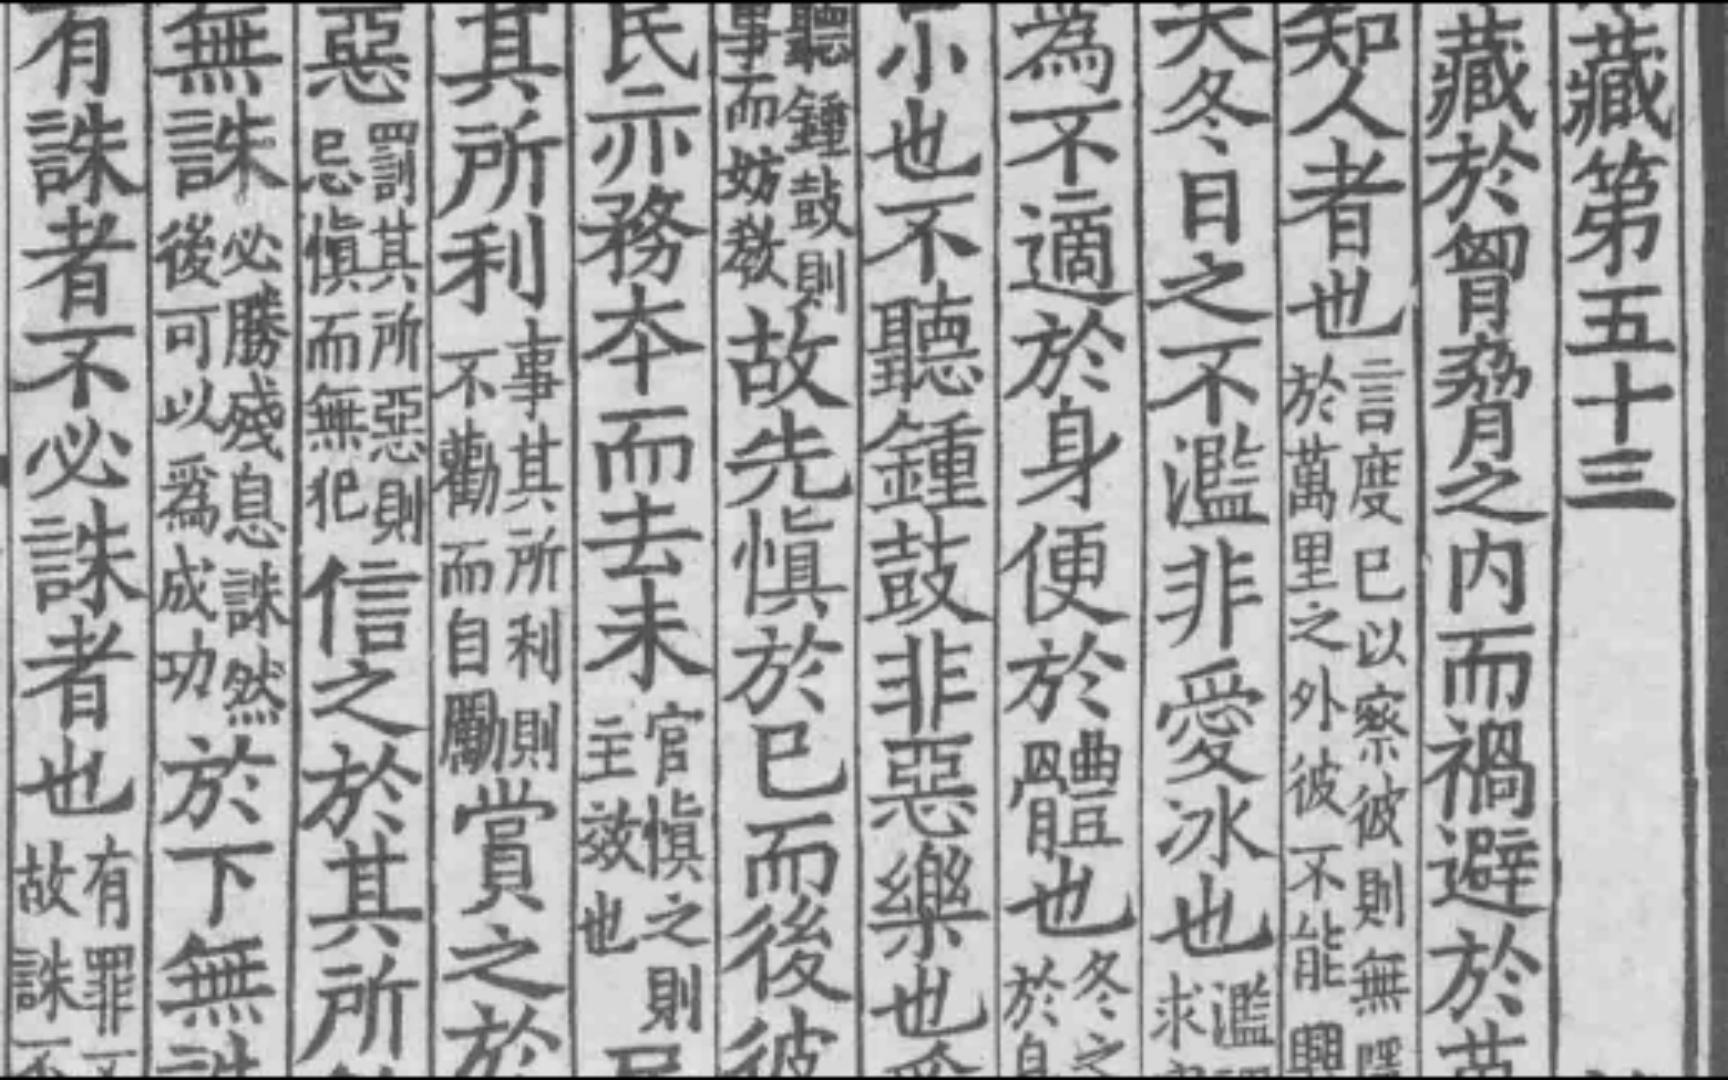 藏第五十三
藏於胷脅之内而禍避於萬
知人者也言度已以察彼則無
於萬里之外彼不能
夫冬日之不濫非愛冰也濫
求
為不適於身便於體也冬之
於
小也不聽鍾鼓非惡樂也
聽鍾鼓則
事而妨敎故先慎於已而後彼
民亦務夲而去未官慎之則
主效也
其所利事其所利則
不勸而自勵賞之於
惡罰其所惡則
忌慎而無犯信之於其所
無誅必勝殘息誅然
後可以爲成功於下無
有誅者不必誅者也有罪
故誅